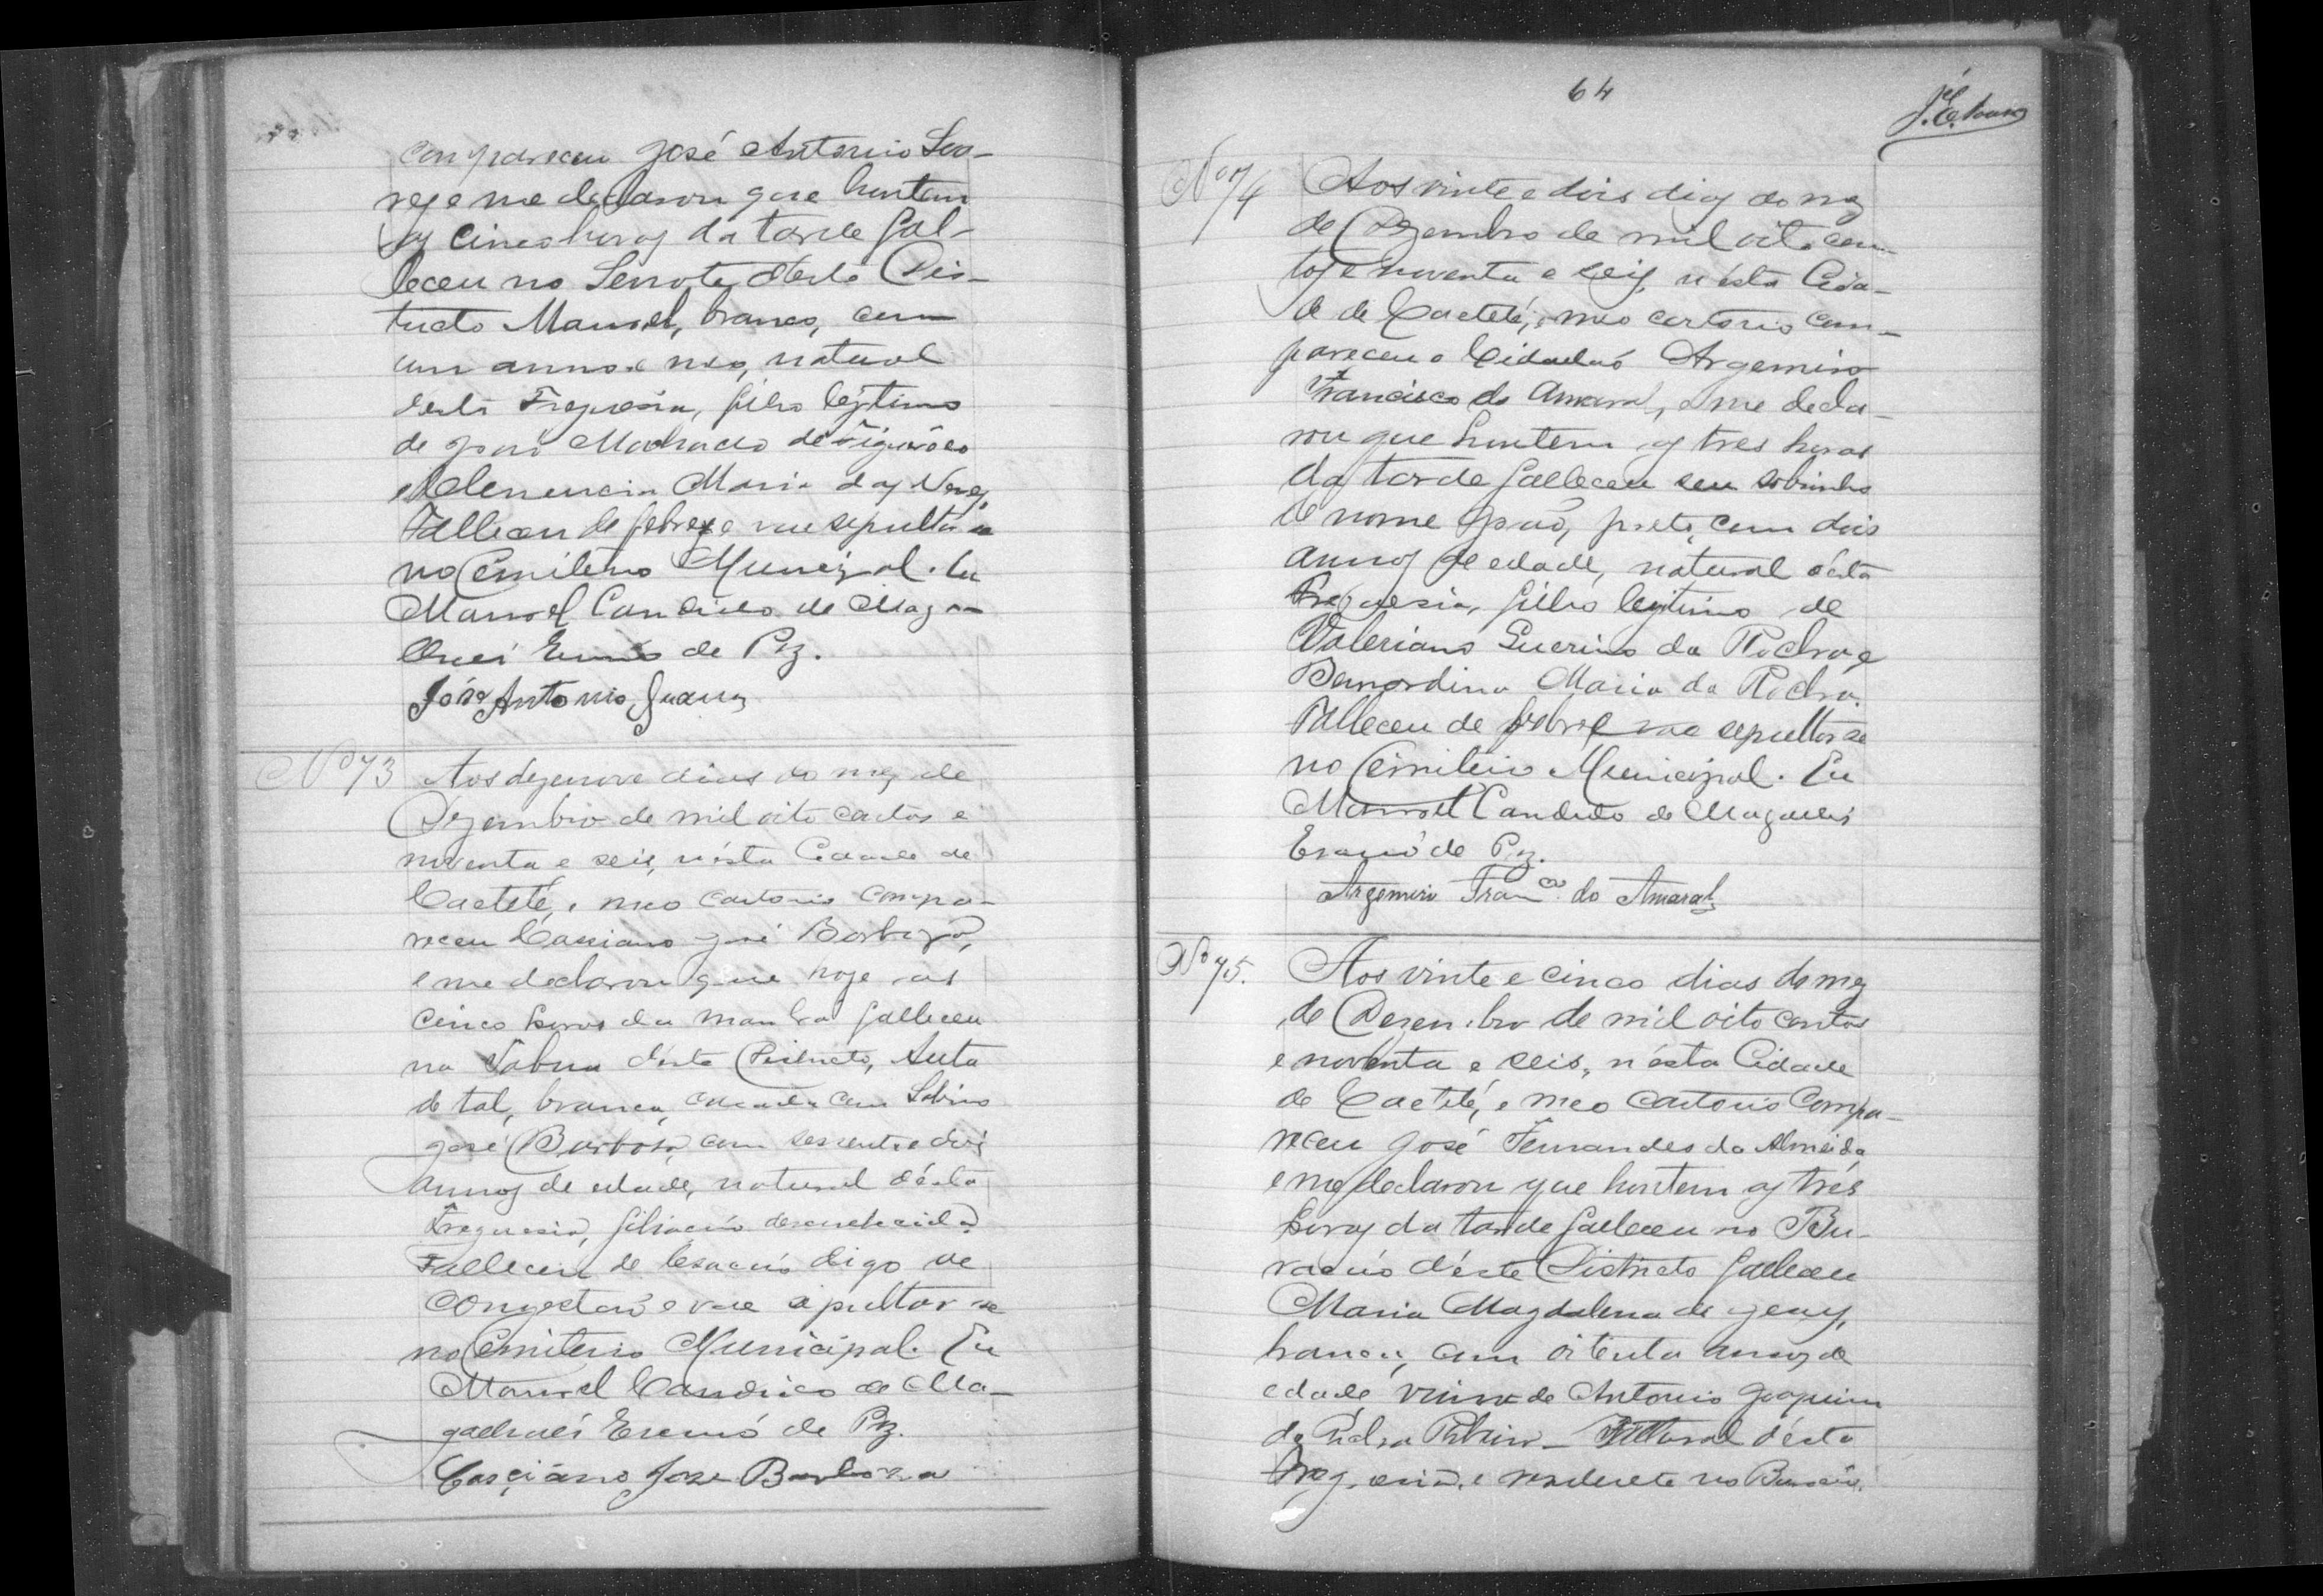 compareceu José Antonio Soa-
res e me declarou que hontem
as cinco horas da tarde fal-
leceu no Serrote d'este Dis-
tricto Manoel, branco, com
um anno e meio, natural
desta Freguesia, filho legitimo
de João Machado de
e Clemencia Maria das Neves,
Falleceu de febre, e vae sepultar-se
no Cemiterio Municipal. Eu
Manoel Candido de Maga-
lhães Escrivão de Paz.
José Antonio Soares
Nº 73 Aos dezenove dias do mez de
Dezembro de mil oito centos e
noventa e seis, n'ésta Cidade de
Caeteté, e meo cartorio compa-
receu Cassiano José Barboza,
e me declarou que hoje as
cinco horas da manhã falleceu
na d'este Districto, Anta
de tal, branca, casada com Sabino
José Barbosa, com sessenta e dois
annos de edade, natural d'ésta
Freguesia, filiação desconhecida.
Falleceu de digo de
congestão e vae sepultar-se
no Cemiterio Municipal. Eu
Manoel Candido de Ma-
galhães Escrivão de Paz.
Casciano Jose Barboza
64
Nº 74 Aos vinte e dois dias do mez
de Dezembro de mil oito cen-
tos e noventa e seis, n'ésta Cida-
de de Caeteté, e meo cartorio com-
pareceu o Cidadão Argemiro
Francisco do Amaral, e me decla-
rou que hontem as tres horas
da tarde falleceu seu sobrinho
de nome João, preto, com dois
annos de edade, natural d'ésta
Freguesia, filho legitimo de
Valeriano Guerino da Rocha e
Bernardina Maria da Rocha.
Falleceu de febre e vae sepultar-se
no Cemiterio Municipal. Eu
Manoel Candido de Magalhães
Escrivão de Paz.
Argemiro Franco do Amaral
Nº 75. Aos vinte e cinco dias do mez
de Desembro de mil oito centos
e noventa e seis, n'ésta Cidade
de Caeteté, e meo Cartorio Compa-
receu José Fernandes de Almeida
e me declarou que hontem as três
horas da tarde falleceu no Bu-
racão d'éste Districto falleceu
Maria Magdalena de Jesus,
branca, com oitenta annos de
edade, viuva de Antonio Joaquim
da Ribeiro - Natural d'ésta
Freguesia, e residente no Buracão.